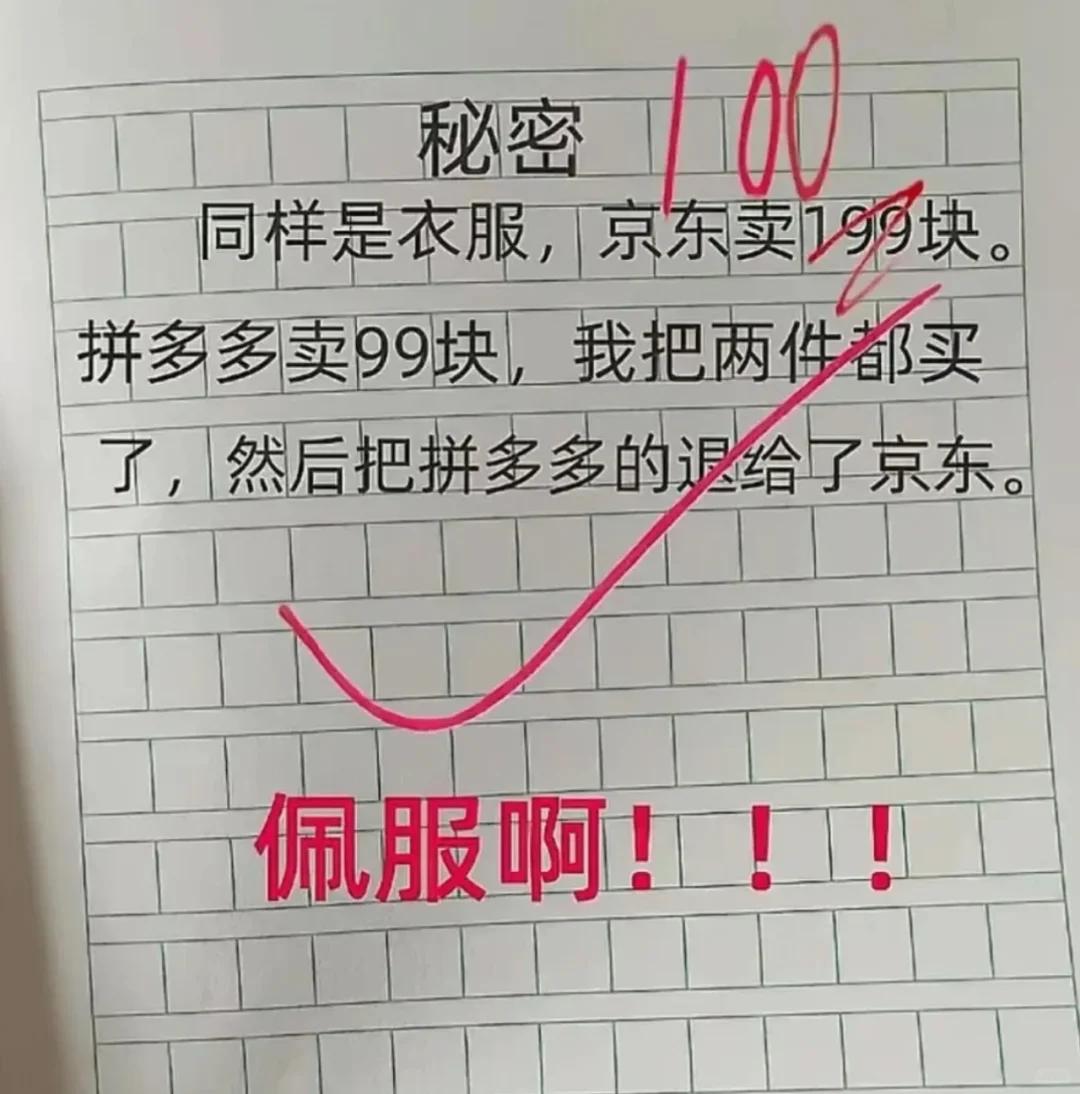 秘密
100
同样是衣服，京东卖199块。
拼多多卖99块，我把两件都买
了，然后把拼多多的退给了京东。
佩服啊！！！